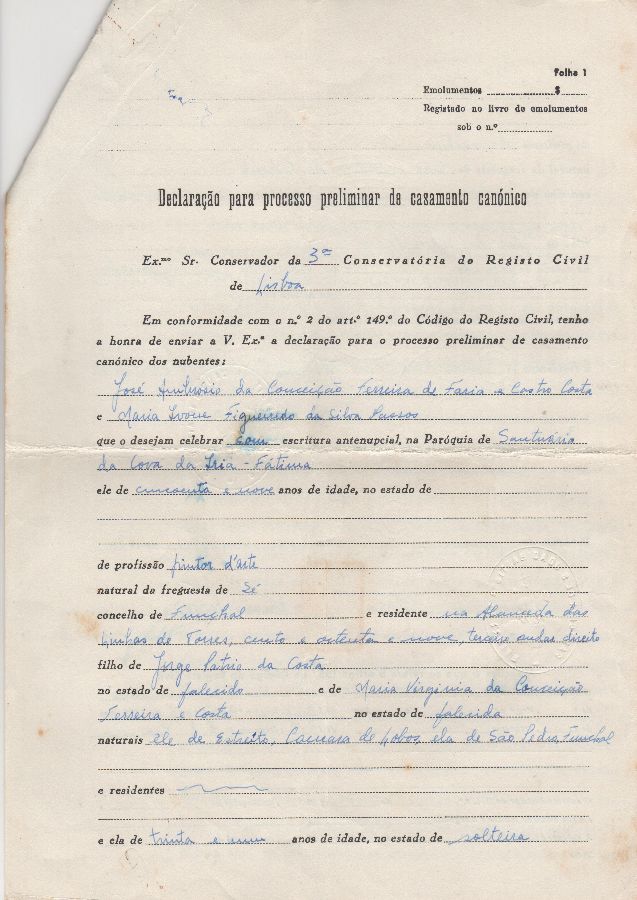 Folha 1
Emolumentos $
Registado no livro de emolumentos
sob o n.º
Declaração para processo preliminar de casamento canónico
Ex.mo Sr. Conservador da 3ª Conservatória do Registo Civil
de Lisboa
Em conformidade com o n.º 2 do art.º 149.º do Código do Registo Civil, tenho
a honra de enviar a V. Ex.ª a declaração para o processo preliminar de casamento
canónico dos nubentes:
José Ambrósio da Conceição Ferreira de Faria e Castro Costa
e Maria Ivone Figueiredo da Silva Passos
que o desejam celebrar com escritura antenupcial, na Paróquia de Santuário
da Cova da Iria - Fátima
ele de cincoenta e nove anos de idade, no estado de
de profissão pintor d'arte
natural da freguesia de Sé
concelho de Funchal e residente na Alameda das
Linhas de Torres, cento e oitenta e nove, terceiro andar direito
filho de Jorge Patrio da Costa
no estado de falecido e de Maria Virginia da Conceição
Ferreira e Costa no estado de falecida
naturais ele de Estreito, Camara de Lobos, ela de São Pedro, Funchal
e residentes
e ela de trinta e um anos de idade, no estado de solteira